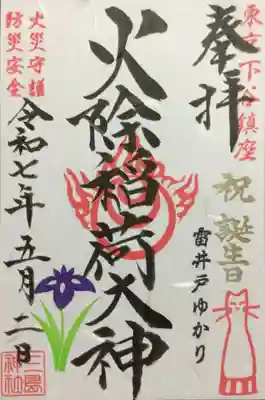 東京下谷鎮座
奉拝
祝誕生日
雷井戸ゆかり
火除稲荷大神
火災守護
防災安全
令和七年五月二日
三島神社